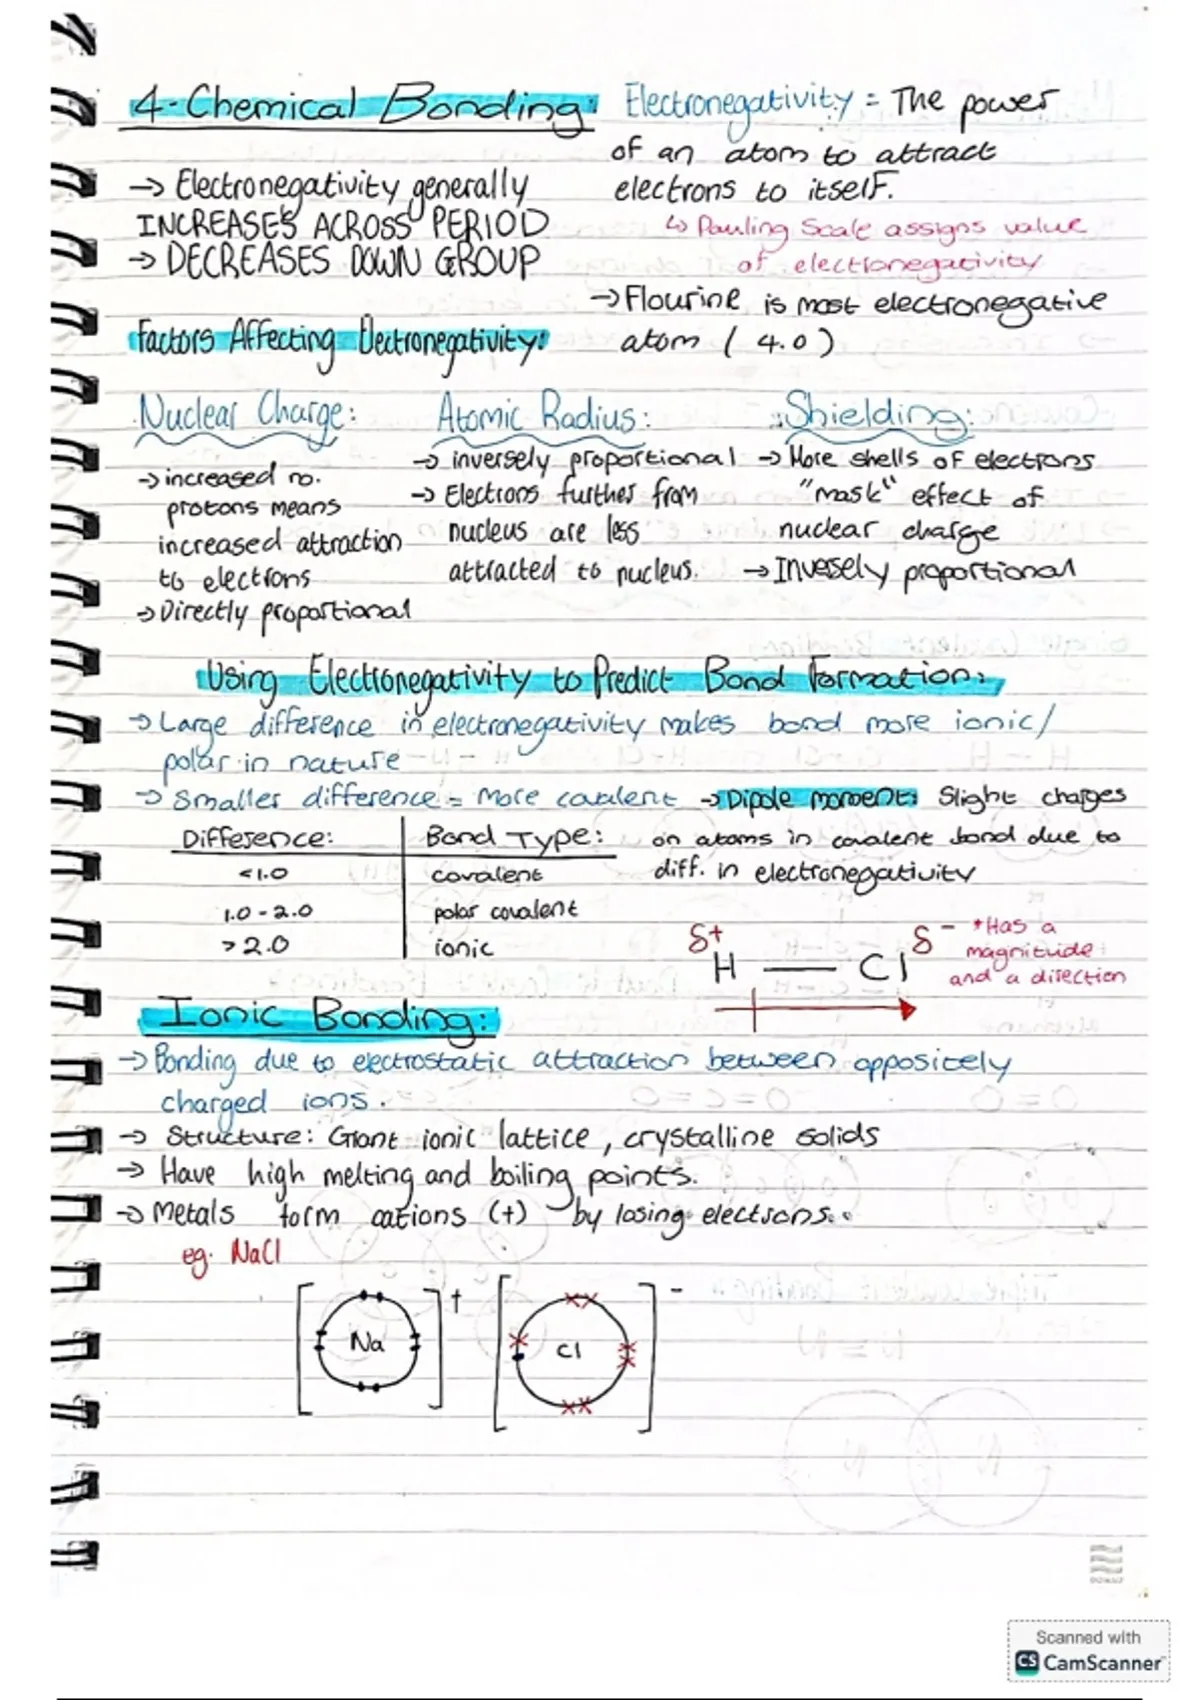 4-Chemical Bonding:
Electronegativity = The power
of an atom to attract
electrons to itself.
↳ Pauling Scale assigns value
of electronegativity
→ Flourine is most electronegative
atom (4.0)
→ Electronegativity generally
INCREASES ACROSS PERIOD
→ DECREASES DOWN GROUP
Factors Affecting Electronegativity:
Nuclear Charge:
→ increased no.
protons means
increased attraction
to electrons
→ Directly proportional
Atomic Radius:
→ inversely proportional
→ Electrons further from
nucleus are less
attracted to nucleus.
Shielding:
→ More shells of electrons
"mask" effect of
nuclear charge
→ Inversely proportional
Using Electronegativity to Predict Bond Formation:
→ Large difference in electronegativity makes bond more ionic/
polar in nature
→ Smaller difference = More covalent
→ Dipole moment: Slight charges
on atoms in covalent bond due to
diff. in electronegativity
Difference: Bond Type:
<1.0 covalent
1.0 - 2.0 polar covalent
>2.0 ionic
δ+ δ-
H — Cl
*Has a
magnitude
and a direction
Ionic Bonding:
→ Bonding due to electrostatic attraction between oppositely
charged ions.
→ Structure: Giant ionic lattice, crystalline solids
→ Have high melting and boiling points.
→ Metals form cations (+) by losing electrons.
eg. NaCl
[Na]+ [Cl]-
Scanned with
CS CamScanner